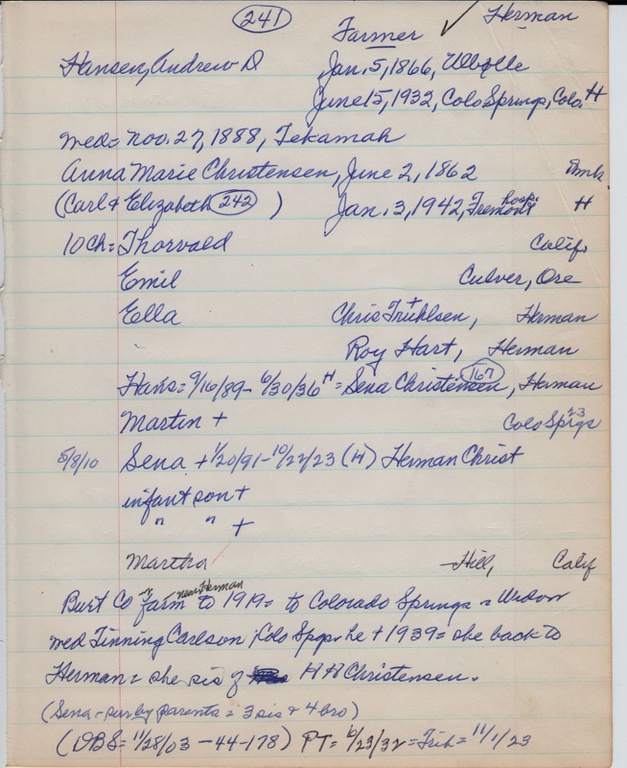 241 Farmer ✓ Herman
Hansen, Andrew D Jan. 5, 1866,
June 15, 1932, Colo Springs, Colo. H
med= Nov. 27, 1888, Tekamah
Anna Marie Christensen, June 2, 1862 Dmk.
(Carl + Elizabeth 242 ) Jan. 3, 1942, Fremont hosp. H
10 Ch= Thorvald Calif.
Emil Culver, Ore
Ella Chris Truhlsen +, Herman
Roy Hart, Herman
Hans= 9/16/89 - 6/30/36 H = Sena Christensen 167, Herman
Martin + Colo Spgs 23
5/8/10 Sena + 1/20/91 - 10/22/23 (H) Herman Christ
infant son +
" " +
Martha - Hill, Calif
Burt Co farm near Herman to 1919= to Colorado Springs = Widow
med Tinning Carlson, Colo Spgs. he + 1939= she back to
Herman= she sis of H H Christensen.
(Sena - sur by parents = 3 sis + 4 bro)
(DBS= 11/28/03 - 44-178) PT= 6/23/32 = Trib= 11/1/23